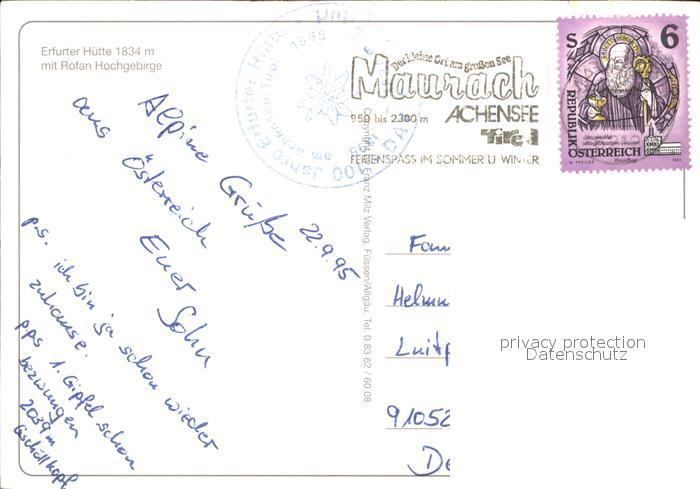 Erfurter Hütte 1834 m
mit Rofan Hochgebirge
Alpine Grüße
aus Österreich
22.9.95
Euer Sohn
p.s. ich bin ja schon wieder
zuhause.
pps 1. Gipfel schon
bezwungen
2039m
Gschöllkopf
100 Jahre Erfurter Hütte
1895
1995
am Achensee/Tirol
Der kleine Ort am großen See
Maurach
950 bis 2300 m ACHENSEE
Tirol
FERIENSPASS IM SOMMER U WINTER
S 6
REPUBLIK
ÖSTERREICH
Copyright by Franz Milz Verlag, Füssen/Allgäu, Tel. 0 83 62 / 60 08
Fam
Helmu
Luitp
91052
De
privacy protection
Datenschutz